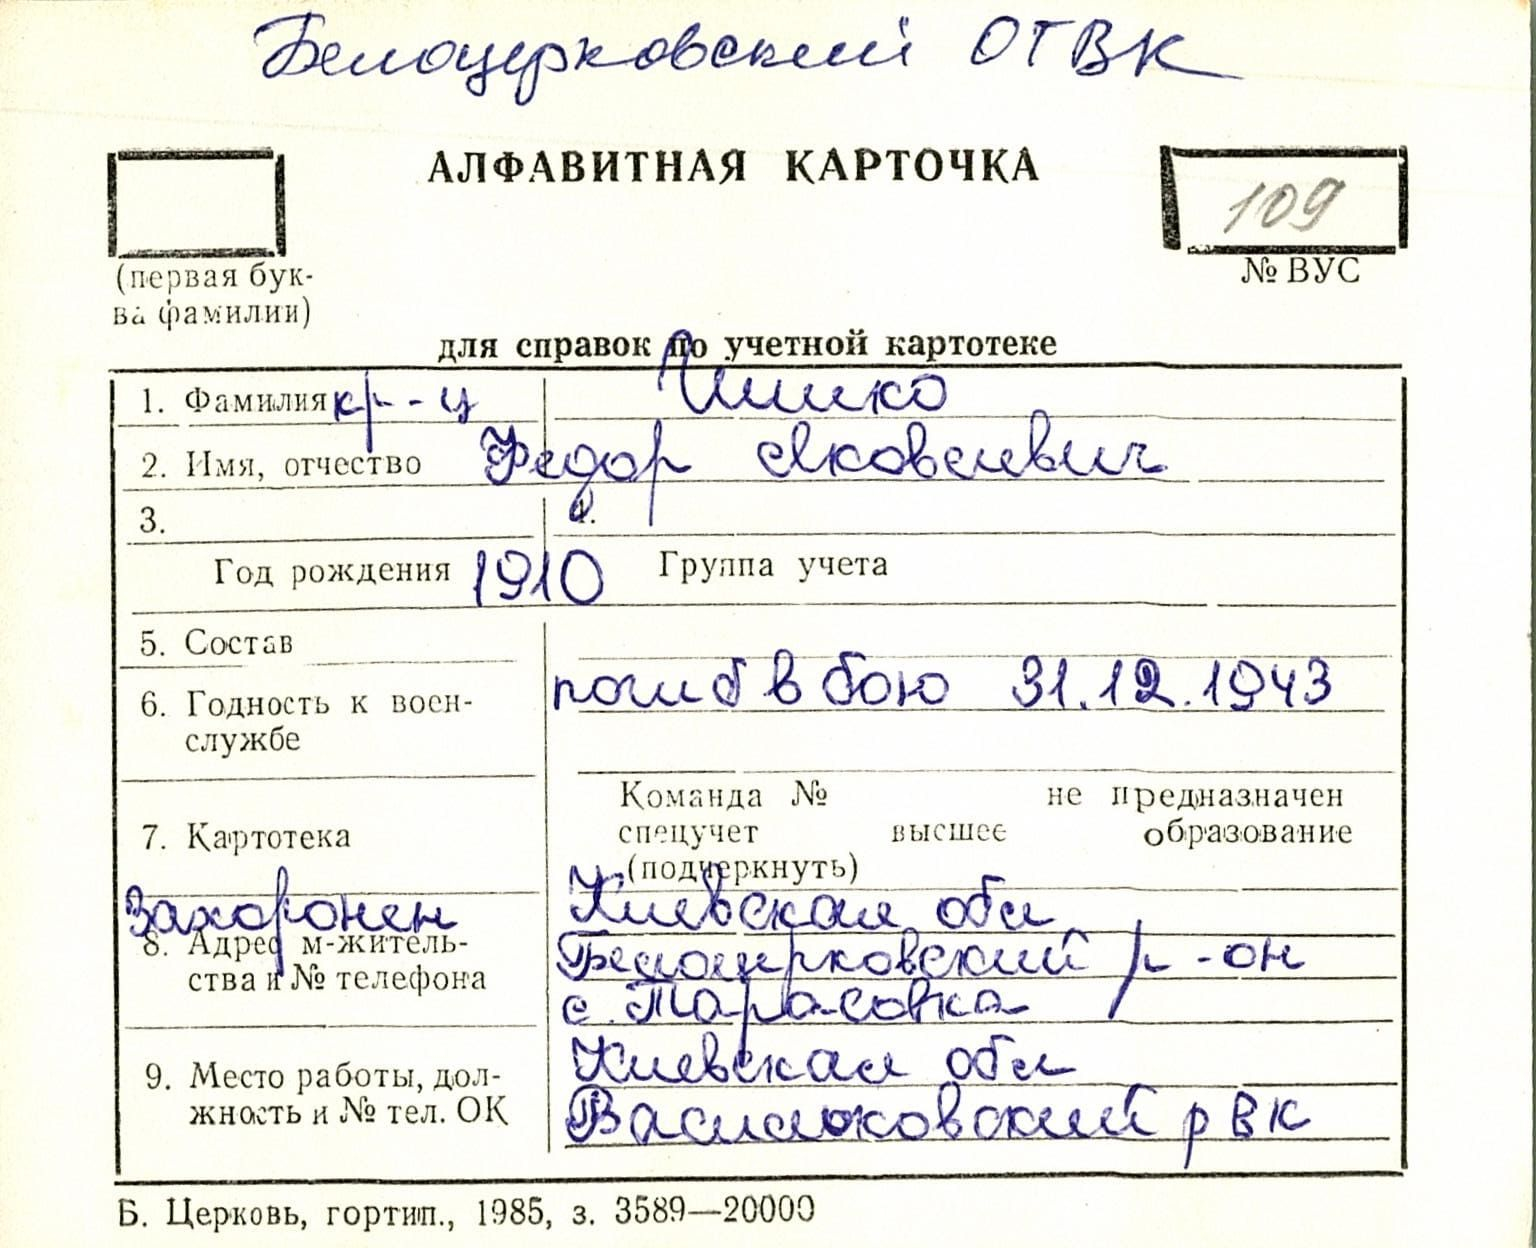 Белоцерковский ОТВК
АЛФАВИТНАЯ КАРТОЧКА
109
(первая бук-
ва фамилии)
№ ВУС
для справок по учетной картотеке
1. Фамилия кр-ц
2. Имя, отчество Федор Яковлевич
3. 4.
Год рождения 1910 Группа учета
5. Состав
погиб в бою 31.12.1943
6. Годность к воен-
службе
Команда № не предназначен
7. Картотека спецучет высшее образование
(подчеркнуть)
Захоронен Киевская обл
8. Адрес м-житель- Белоцерковский р-он
ства и № телефона с. Тарасовка
Киевская обл
9. Место работы, дол-
жность и № тел. ОК Васильковский рвк
Б. Церковь, гортип., 1985, з. 3589—20000